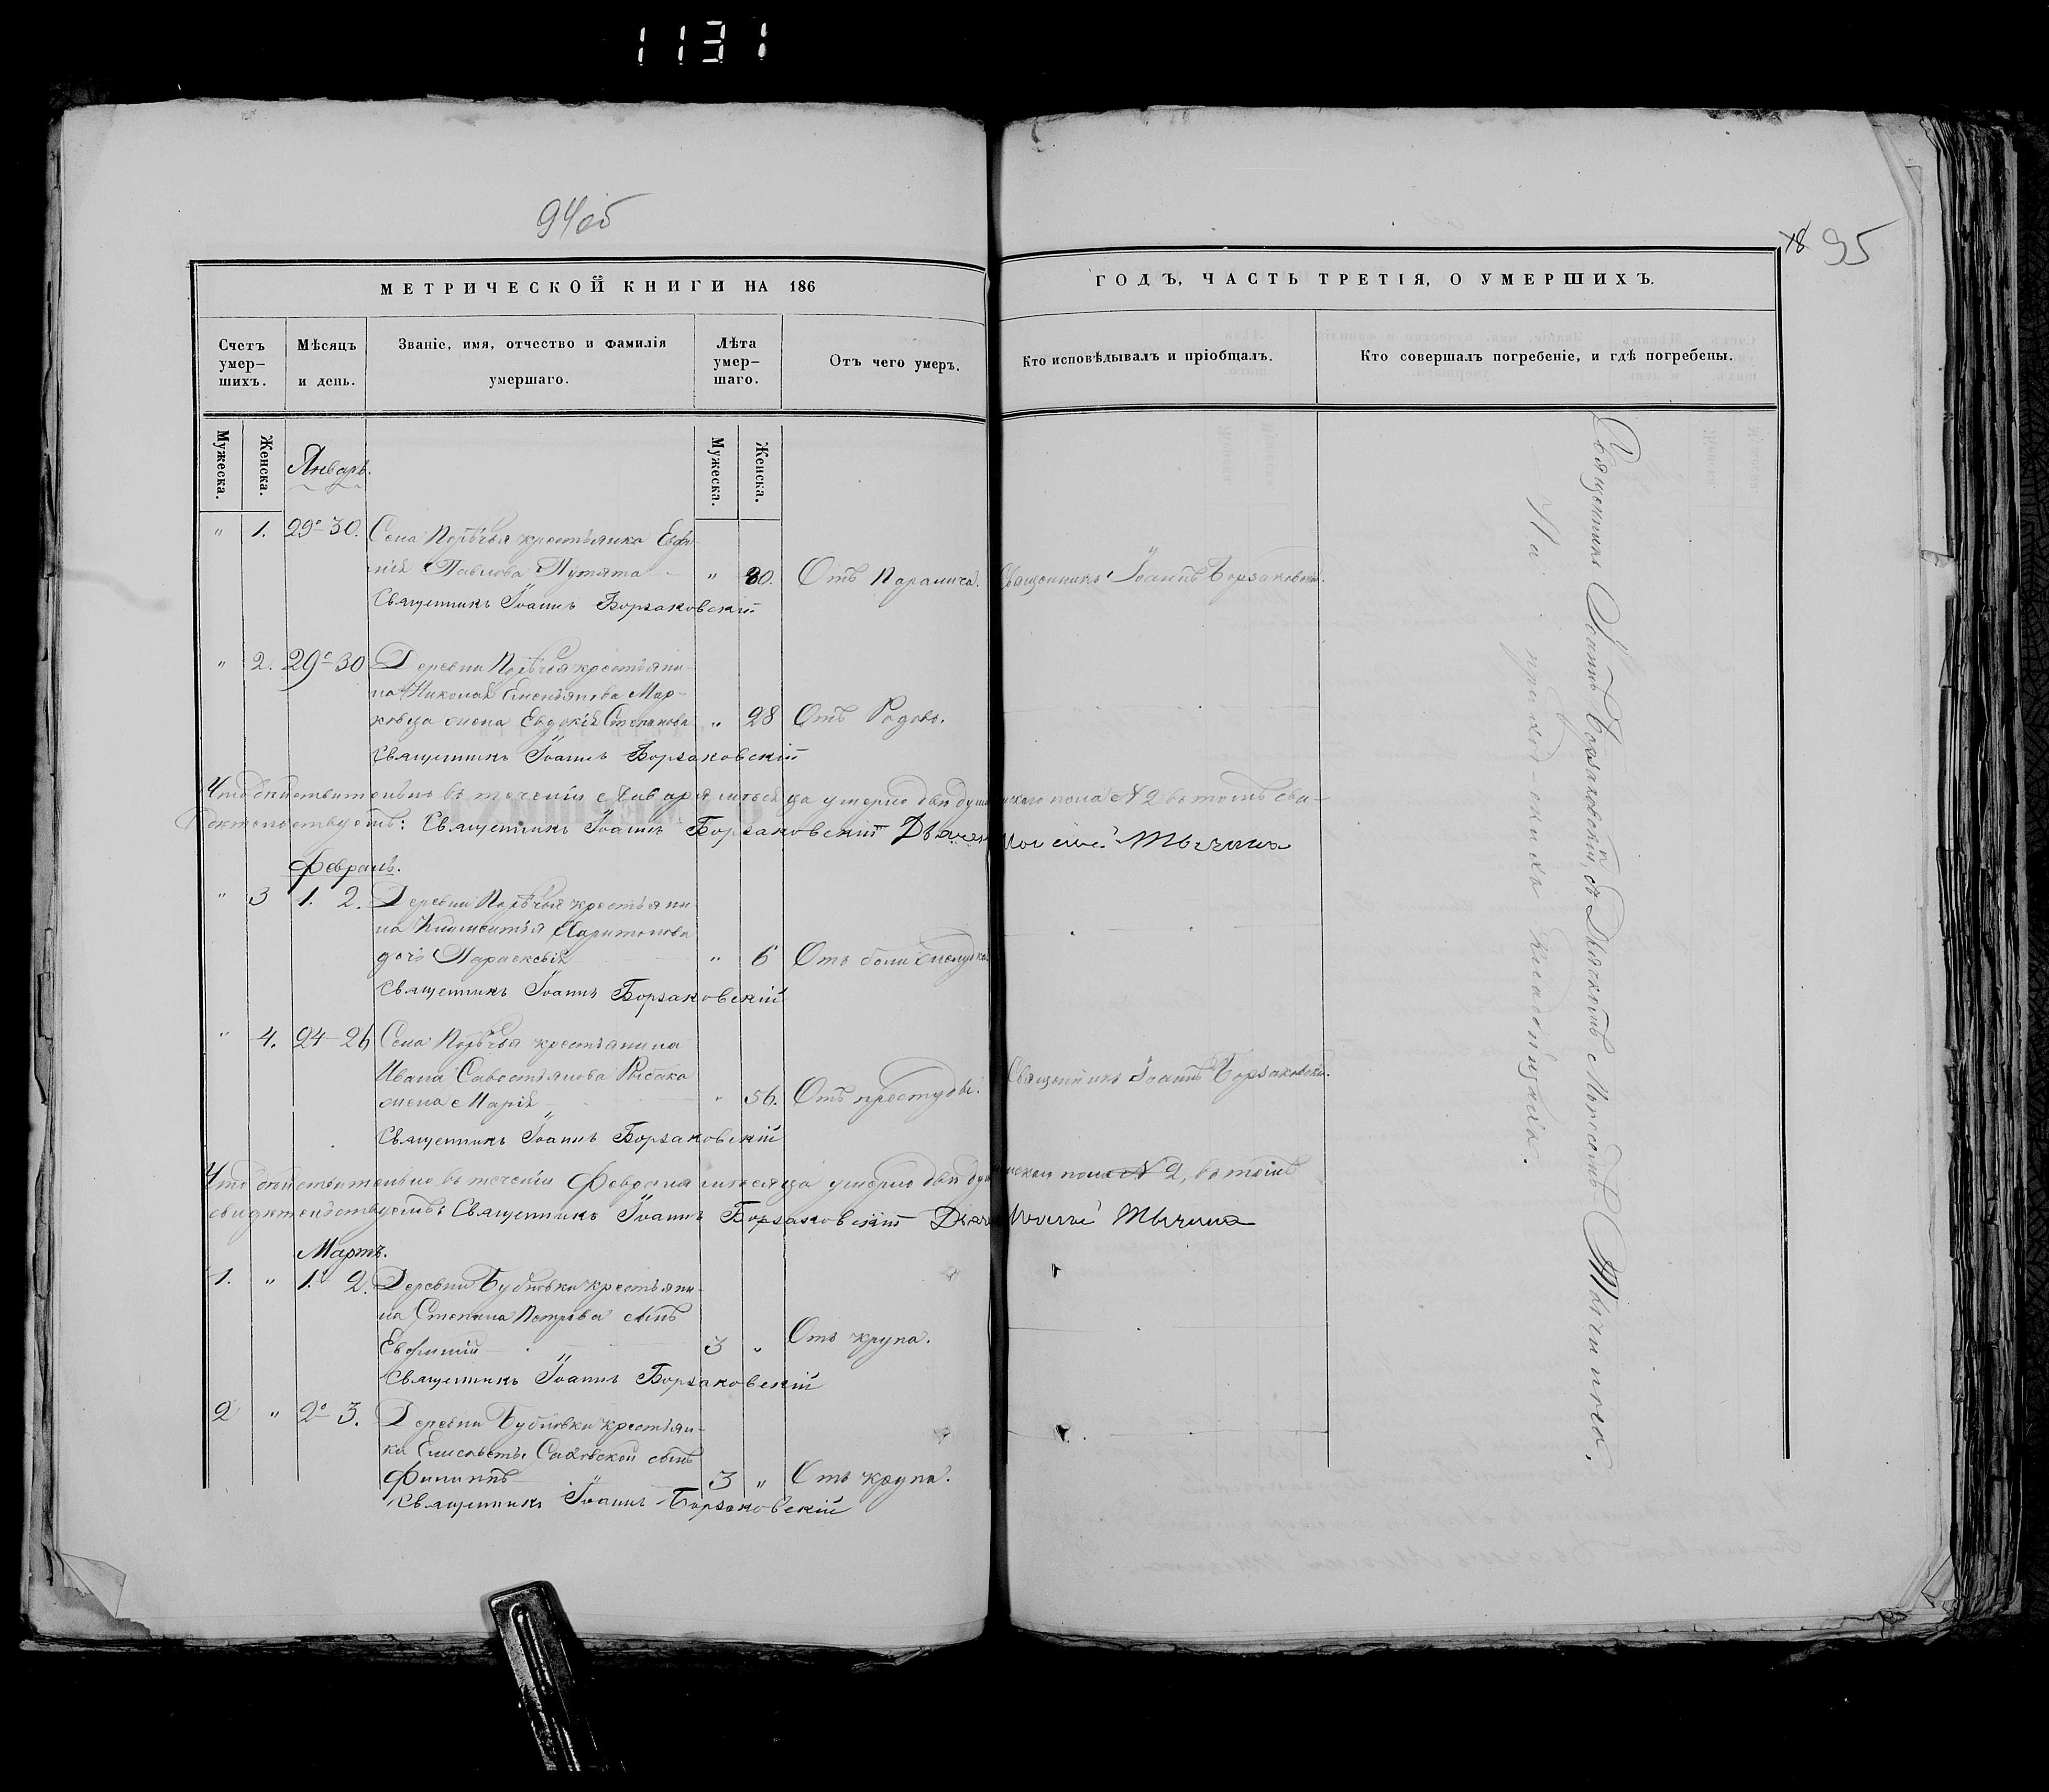 1131
94об
МЕТРИЧЕСКОЙ КНИГИ НА 186
Счетъ умер-шихъ.
Мѣсяцъ и день.
Званіе, имя, отчество и фамилія умершаго.
Лѣта умер-шаго.
Отъ чего умеръ.
Мужеска.
Женска.
Мужеска.
Женска.
Январь.
" 1. 29-30. Села Порѣчья крестьянка Евфи-
мія Павлова Путята " 80. Отъ Паралича.
Священникъ Іоаннъ Борзаковскій
" 2. 29-30 Деревни Порѣчья крестьяни-
на Николая Емельянова Мар-
ковца жена Евдокія Степанова " 28 Отъ Родовъ.
Священникъ Іоаннъ Борзаковскій
Что дѣйствительно въ теченіи Января мѣсяца умерло двѣ души женскаго пола № 2 въ томъ сви-
дѣтельствуетъ: Священникъ Іоаннъ Борзаковскій Дьячекъ Моисей Тычина
Февраль.
" 3 1. 2. Деревни Порѣчья крестьяни-
на Климентія Харитонова
дочь Параскевія " 6 Отъ боли
Священникъ Іоаннъ Борзаковскій
" 4. 24-26 Села Порѣчья крестьянина
Ивана Савостьянова Рыбака
жена Марія " 56. Отъ простуды.
Священникъ Іоаннъ Борзаковскій
Что дѣйствительно въ теченіи Февраля мѣсяца умерло двѣ души женскаго пола № 2, въ томъ
свидѣтельствуетъ: Священникъ Іоаннъ Борзаковскій Дьячекъ Моисей Тычина
Мартъ.
1. " 1. 2. Деревни Бубновки крестьяни-
на Степана Петрова сынъ
Евфимій 3 " Отъ крупа.
Священникъ Іоаннъ Борзаковскій
2 " 2. 3. Деревни Бубновки крестьян-
ки Елисаветы сынъ
Филиппъ 3 " Отъ крупа.
Священникъ Іоаннъ Борзаковскій
18 95
ГОДЪ, ЧАСТЬ ТРЕТІЯ, О УМЕРШИХЪ.
Кто исповѣдывалъ и пріобщалъ.
Кто совершалъ погребеніе, и гдѣ погребены.
Священникъ Іоаннъ Борзаковскій.
Священникъ Іоаннъ Борзаковскій.
Священникъ Іоаннъ Борзаковскій, съ Дьячкомъ Моисеемъ Тычиною.
На приходскихъ кладбищахъ.